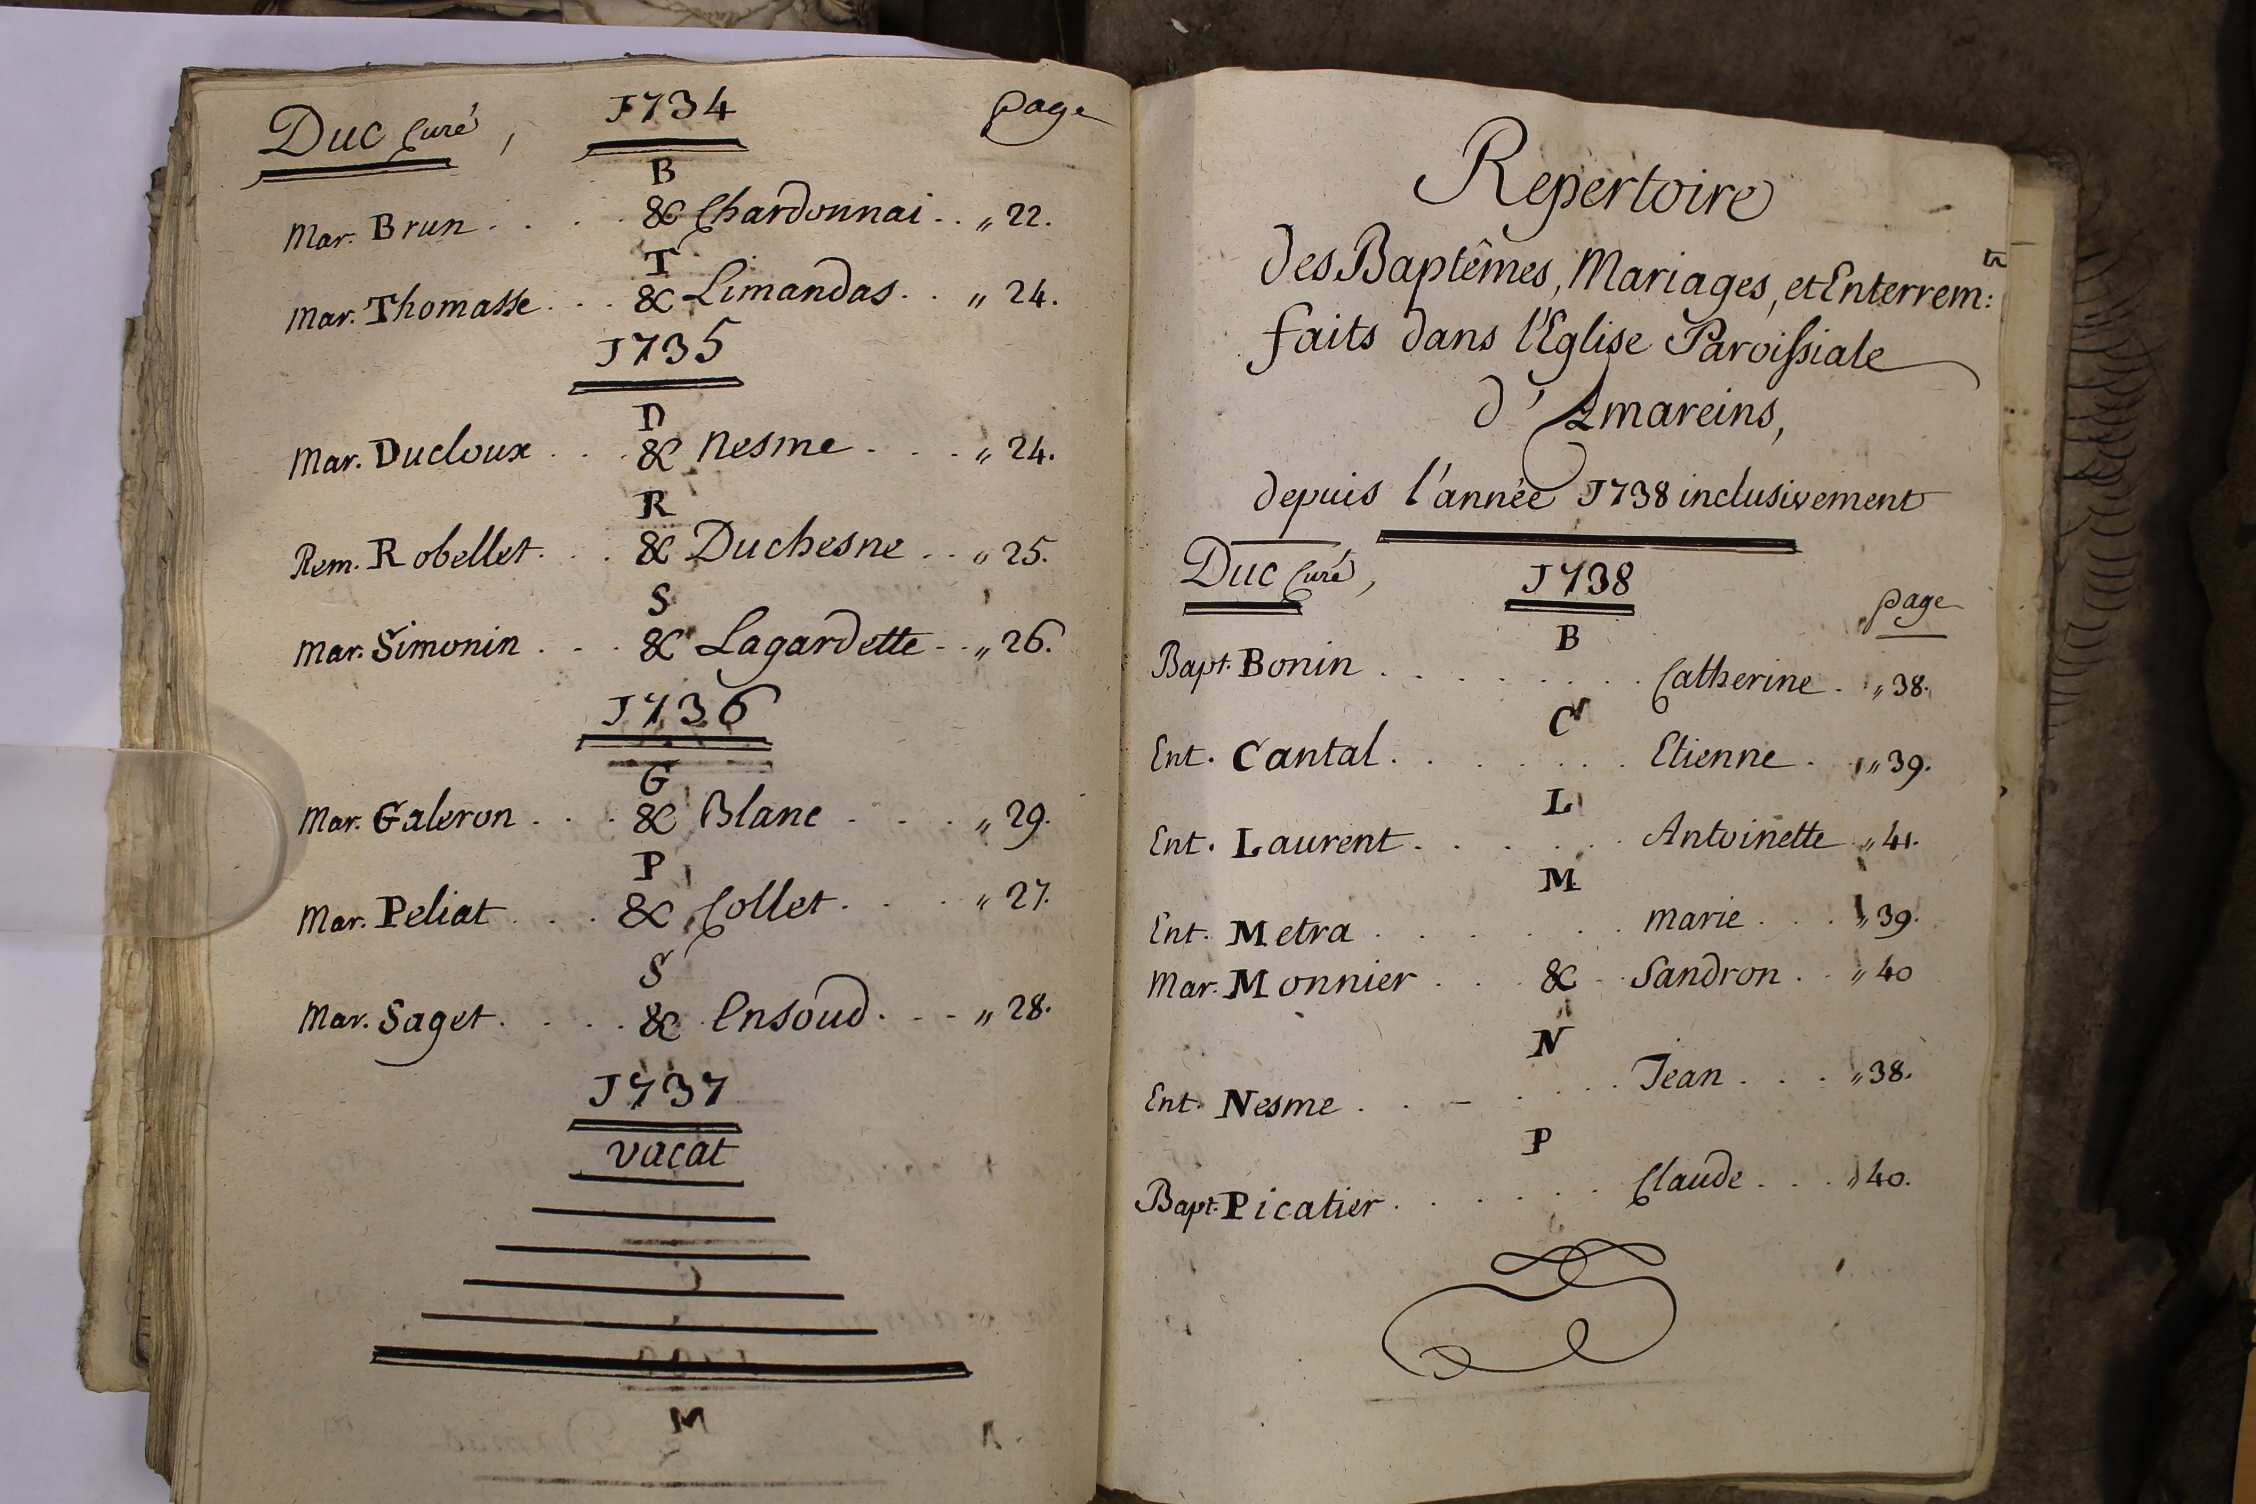 Duc Curé, 1734 page
B
Mar. Brun . . . . & Chardonnai . . " 22.
T
Mar. Thomasse . . . & Limandas . . " 24.
1735
D
Mar. Ducloux . . . & Nesme . . . . " 24.
R
Rem. Robellet . . . & Duchesne . . " 25.
S
Mar. Simonin . . . & Lagardette . . " 26.
1736
G
Mar. Galeron . . . & Blanc . . . . " 29.
P
Mar. Peliat . . . . & Collet . . . . " 27.
S
Mar. Saget . . . . & Ensoud . . . " 28.
1737
vacat
Repertoire
des Baptêmes, Mariages, et Enterrem:ts
faits dans l'Eglise Paroissiale
d'Amareins,
depuis l'année 1738 inclusivement
Duc Curé, 1738
page
B
Bapt. Bonin . . . . . . . . Catherine . " 38.
C
Ent. Cantal . . . . . . . Etienne . . " 39.
L
Ent. Laurent . . . . . . Antoinette " 41.
M
Ent. Metra . . . . . . . marie . . . " 39.
Mar. Monnier . . . & . Sandron . . " 40
N
Ent. Nesme . . - . . . Jean . . . " 38.
P
Bapt. Picatier . . . . . . Claude . . . " 40.